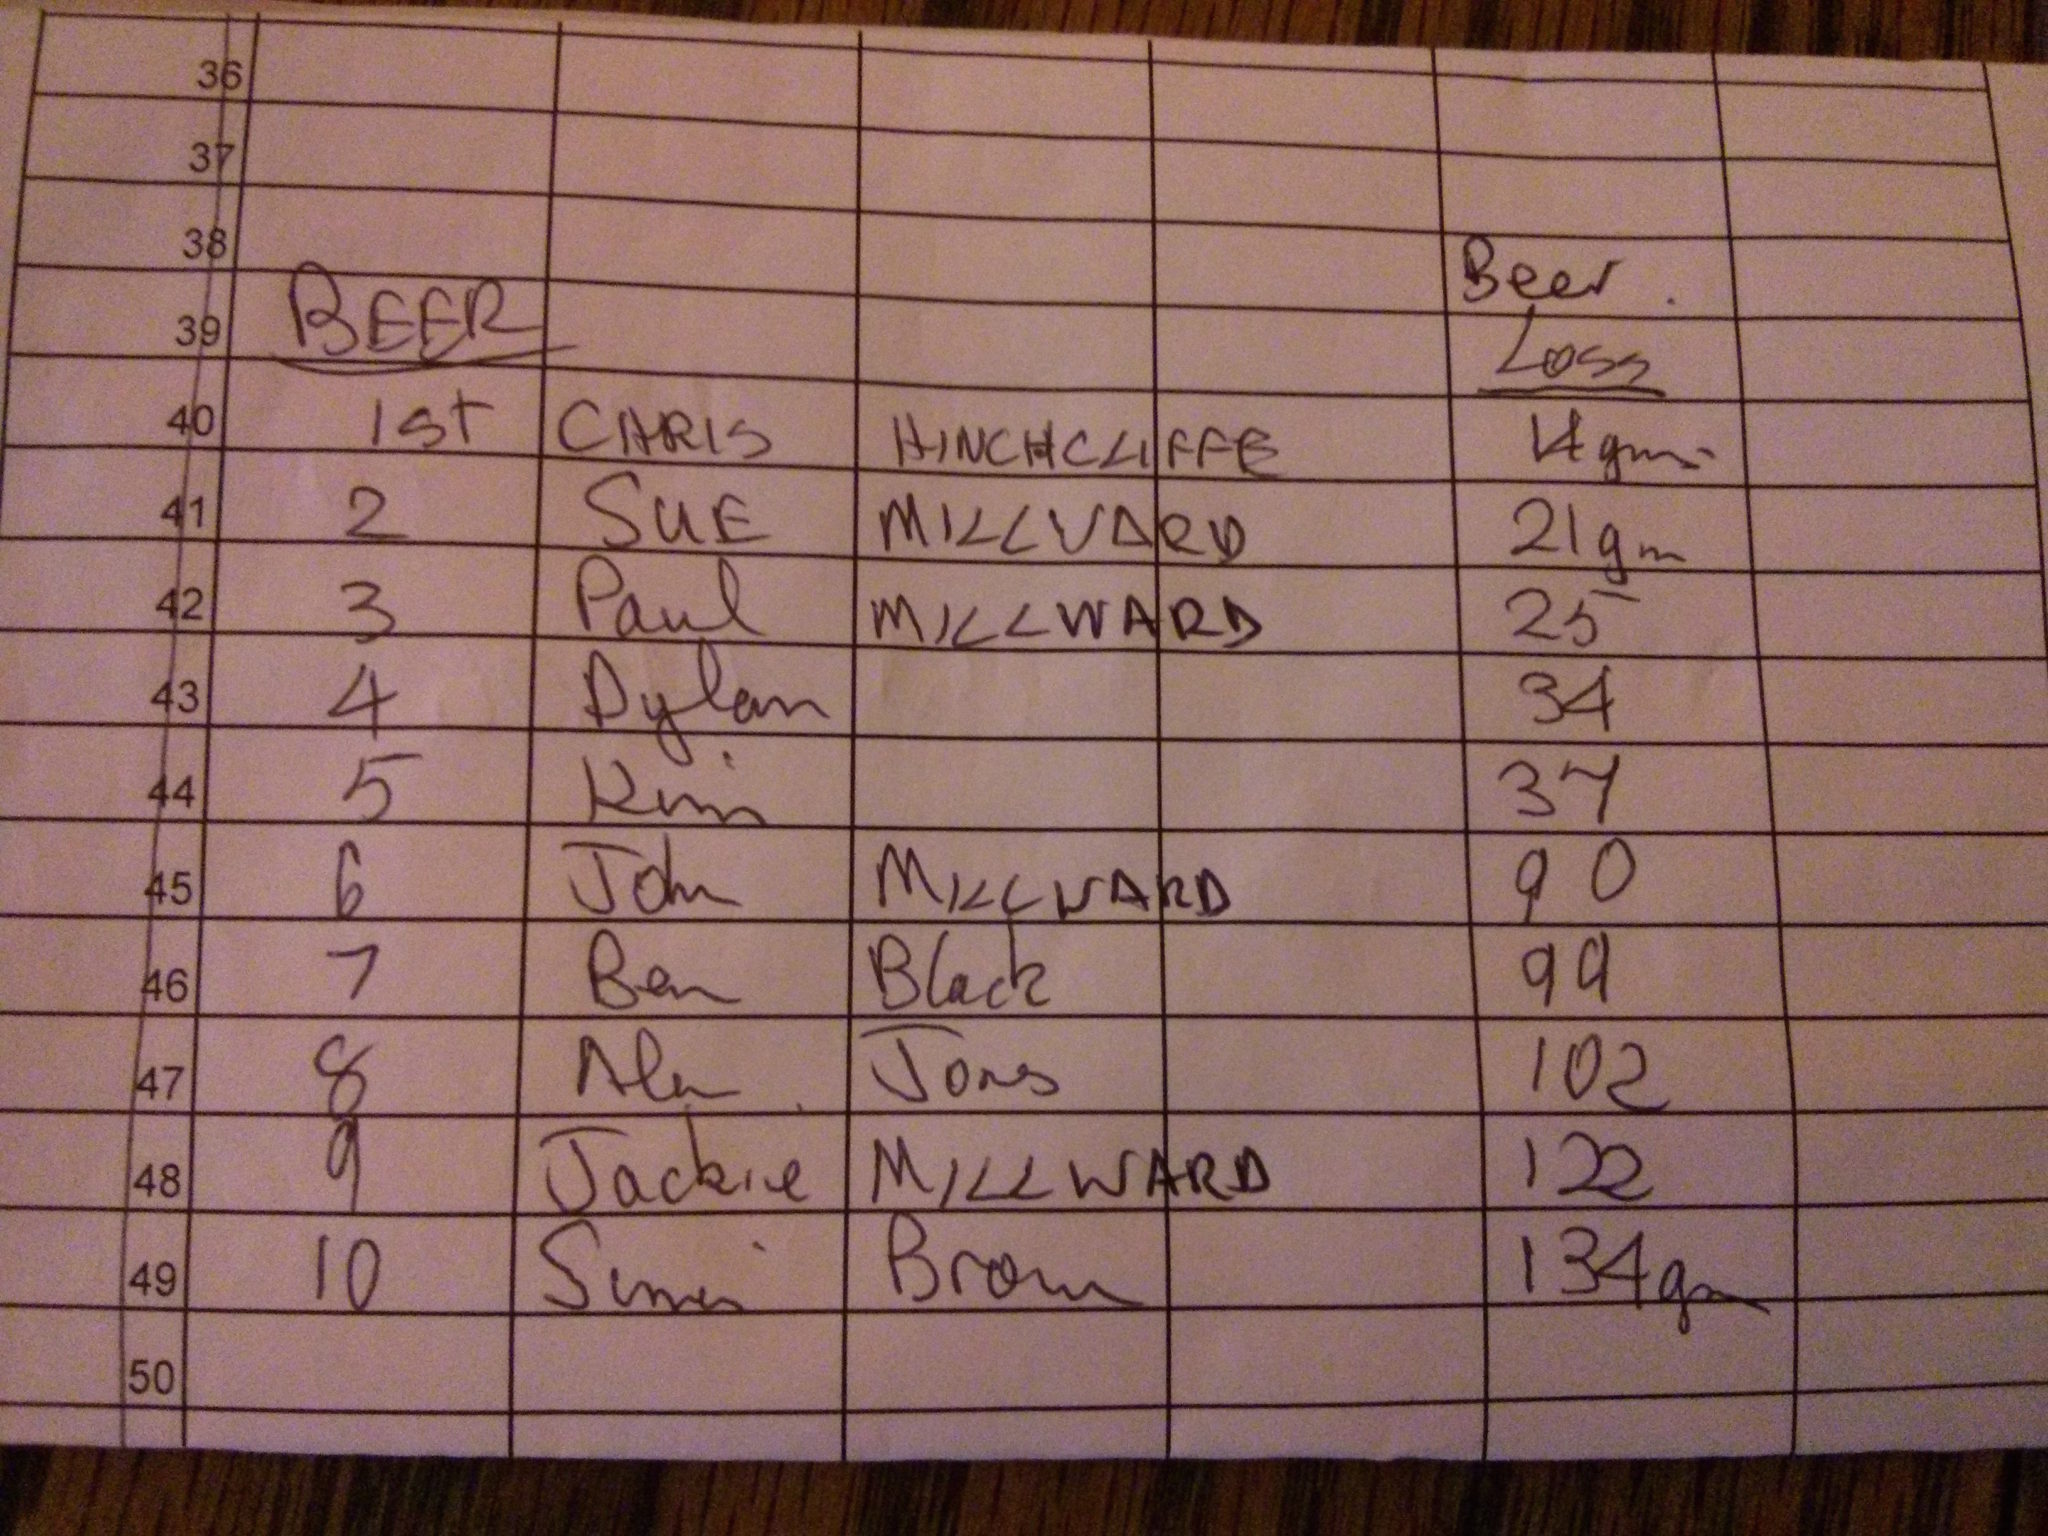 36
37
38 Beer
39 BEER Loss
40 1st CHRIS HINCHCLIFFE 14gms
41 2 SUE MILLWARD 21gm
42 3 Paul MILLWARD 25
43 4 Dylan 34
44 5 Kim 37
45 6 John MILLWARD 90
46 7 Ben Black 99
47 8 Alan Jones 102
48 9 Jackie MILLWARD 122
49 10 Brown 134gm
50